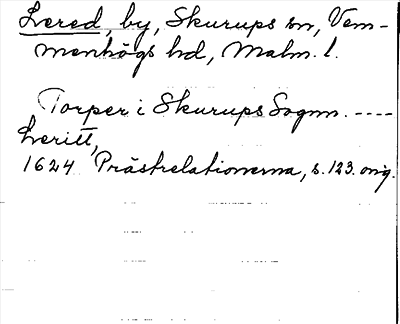 Lered, by, Skurups sn, Vem-
menhögs hd, Malm. l.
Torper i Skurups Sognn. ----
Leritt,
1624 Prästrelationerna, s. 123. orig.